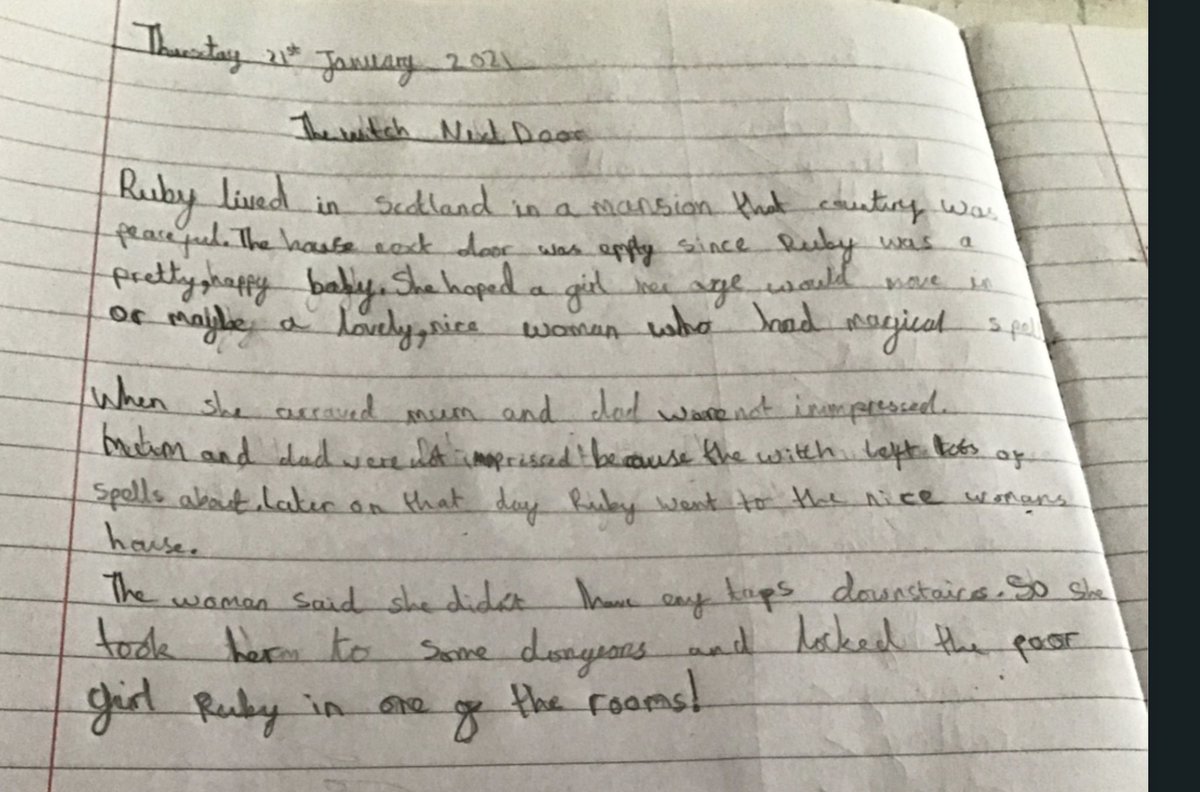 Thursday 21st January 2021
The witch Next Door
Ruby lived in Scotland in a mansion that country was
peaceful. The house next door was empty since Ruby was a
pretty, happy baby. She hoped a girl her age would move in
or maybe, a lovely, nice woman who had magical spell
When she arraved mum and dad were not inimpressed.
mum and dad were not impressed because the witch left lots of
spells about. Later on that day Ruby went to the nice womans
house.
The woman said she didn't have any taps downstairs. So she
took her to some dongeons and locked the poor
girl Ruby in one of the rooms!